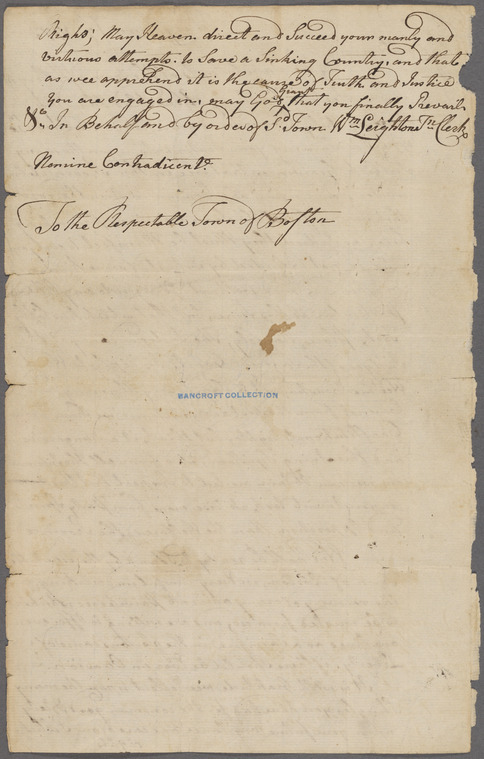 Right; May Heaven direct and Succeed your manly and
virtuous attempts to Save a Sinking Country, and that
as wee apprehend it is the cause of Truth and Justice
You are engaged in, may God grant that you finally Prevail
&c. In Behalf and by order of Sd. Town Wm. Leighton Tn. Clerk
Nemine Contradicente.
To the Respectable Town of Boston
BANCROFT COLLECTION